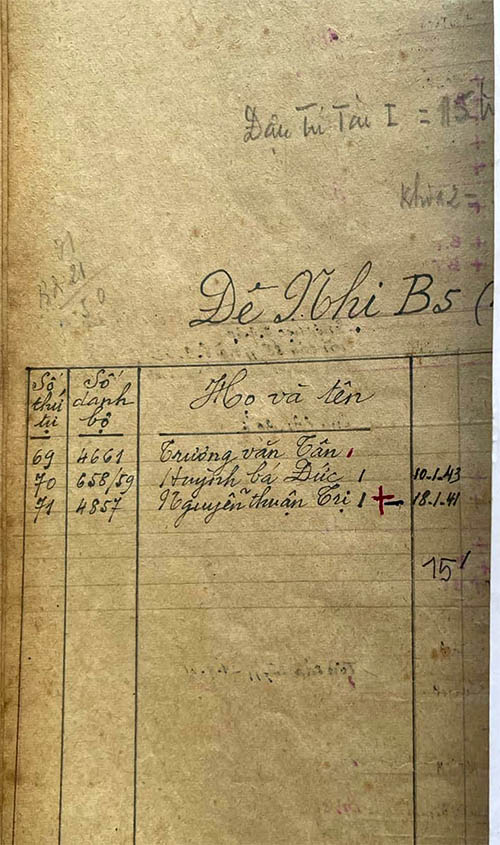 Đậu Tú Tài I = 15
Khóa 2 -
71
21
50
Đệ Nhị B5 (
Số thứ tự
Số danh bộ
Họ và tên
69 4661 Trương văn Tân
70 658/59 Huỳnh bá Đức 10-1-43
71 4857 Nguyễn thuận Trị + 18-1-41
15